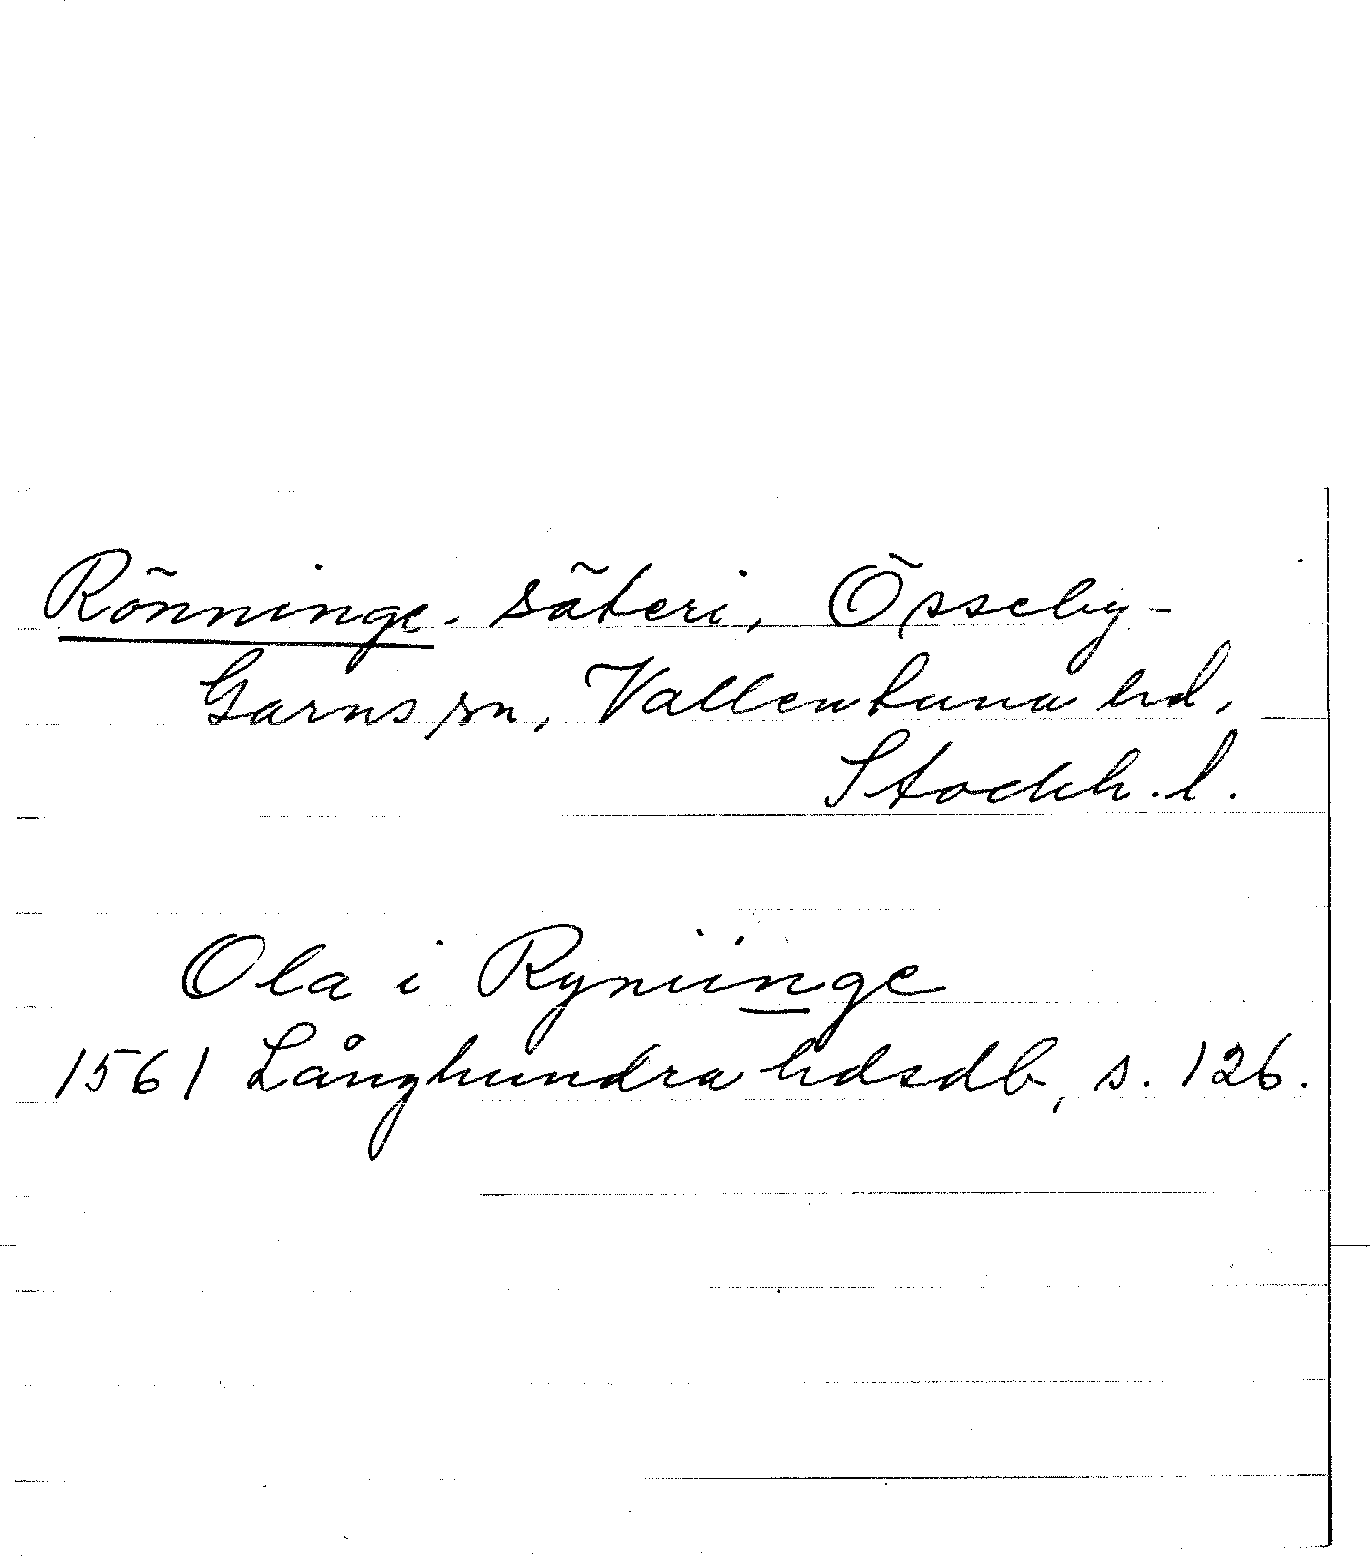 Rönninge. säteri, Össeby-
Garns sn, Vallentuna hd,
Stockh. l.
Ola i Ryniinge
1561 Långhundra hdsdb, s. 126.